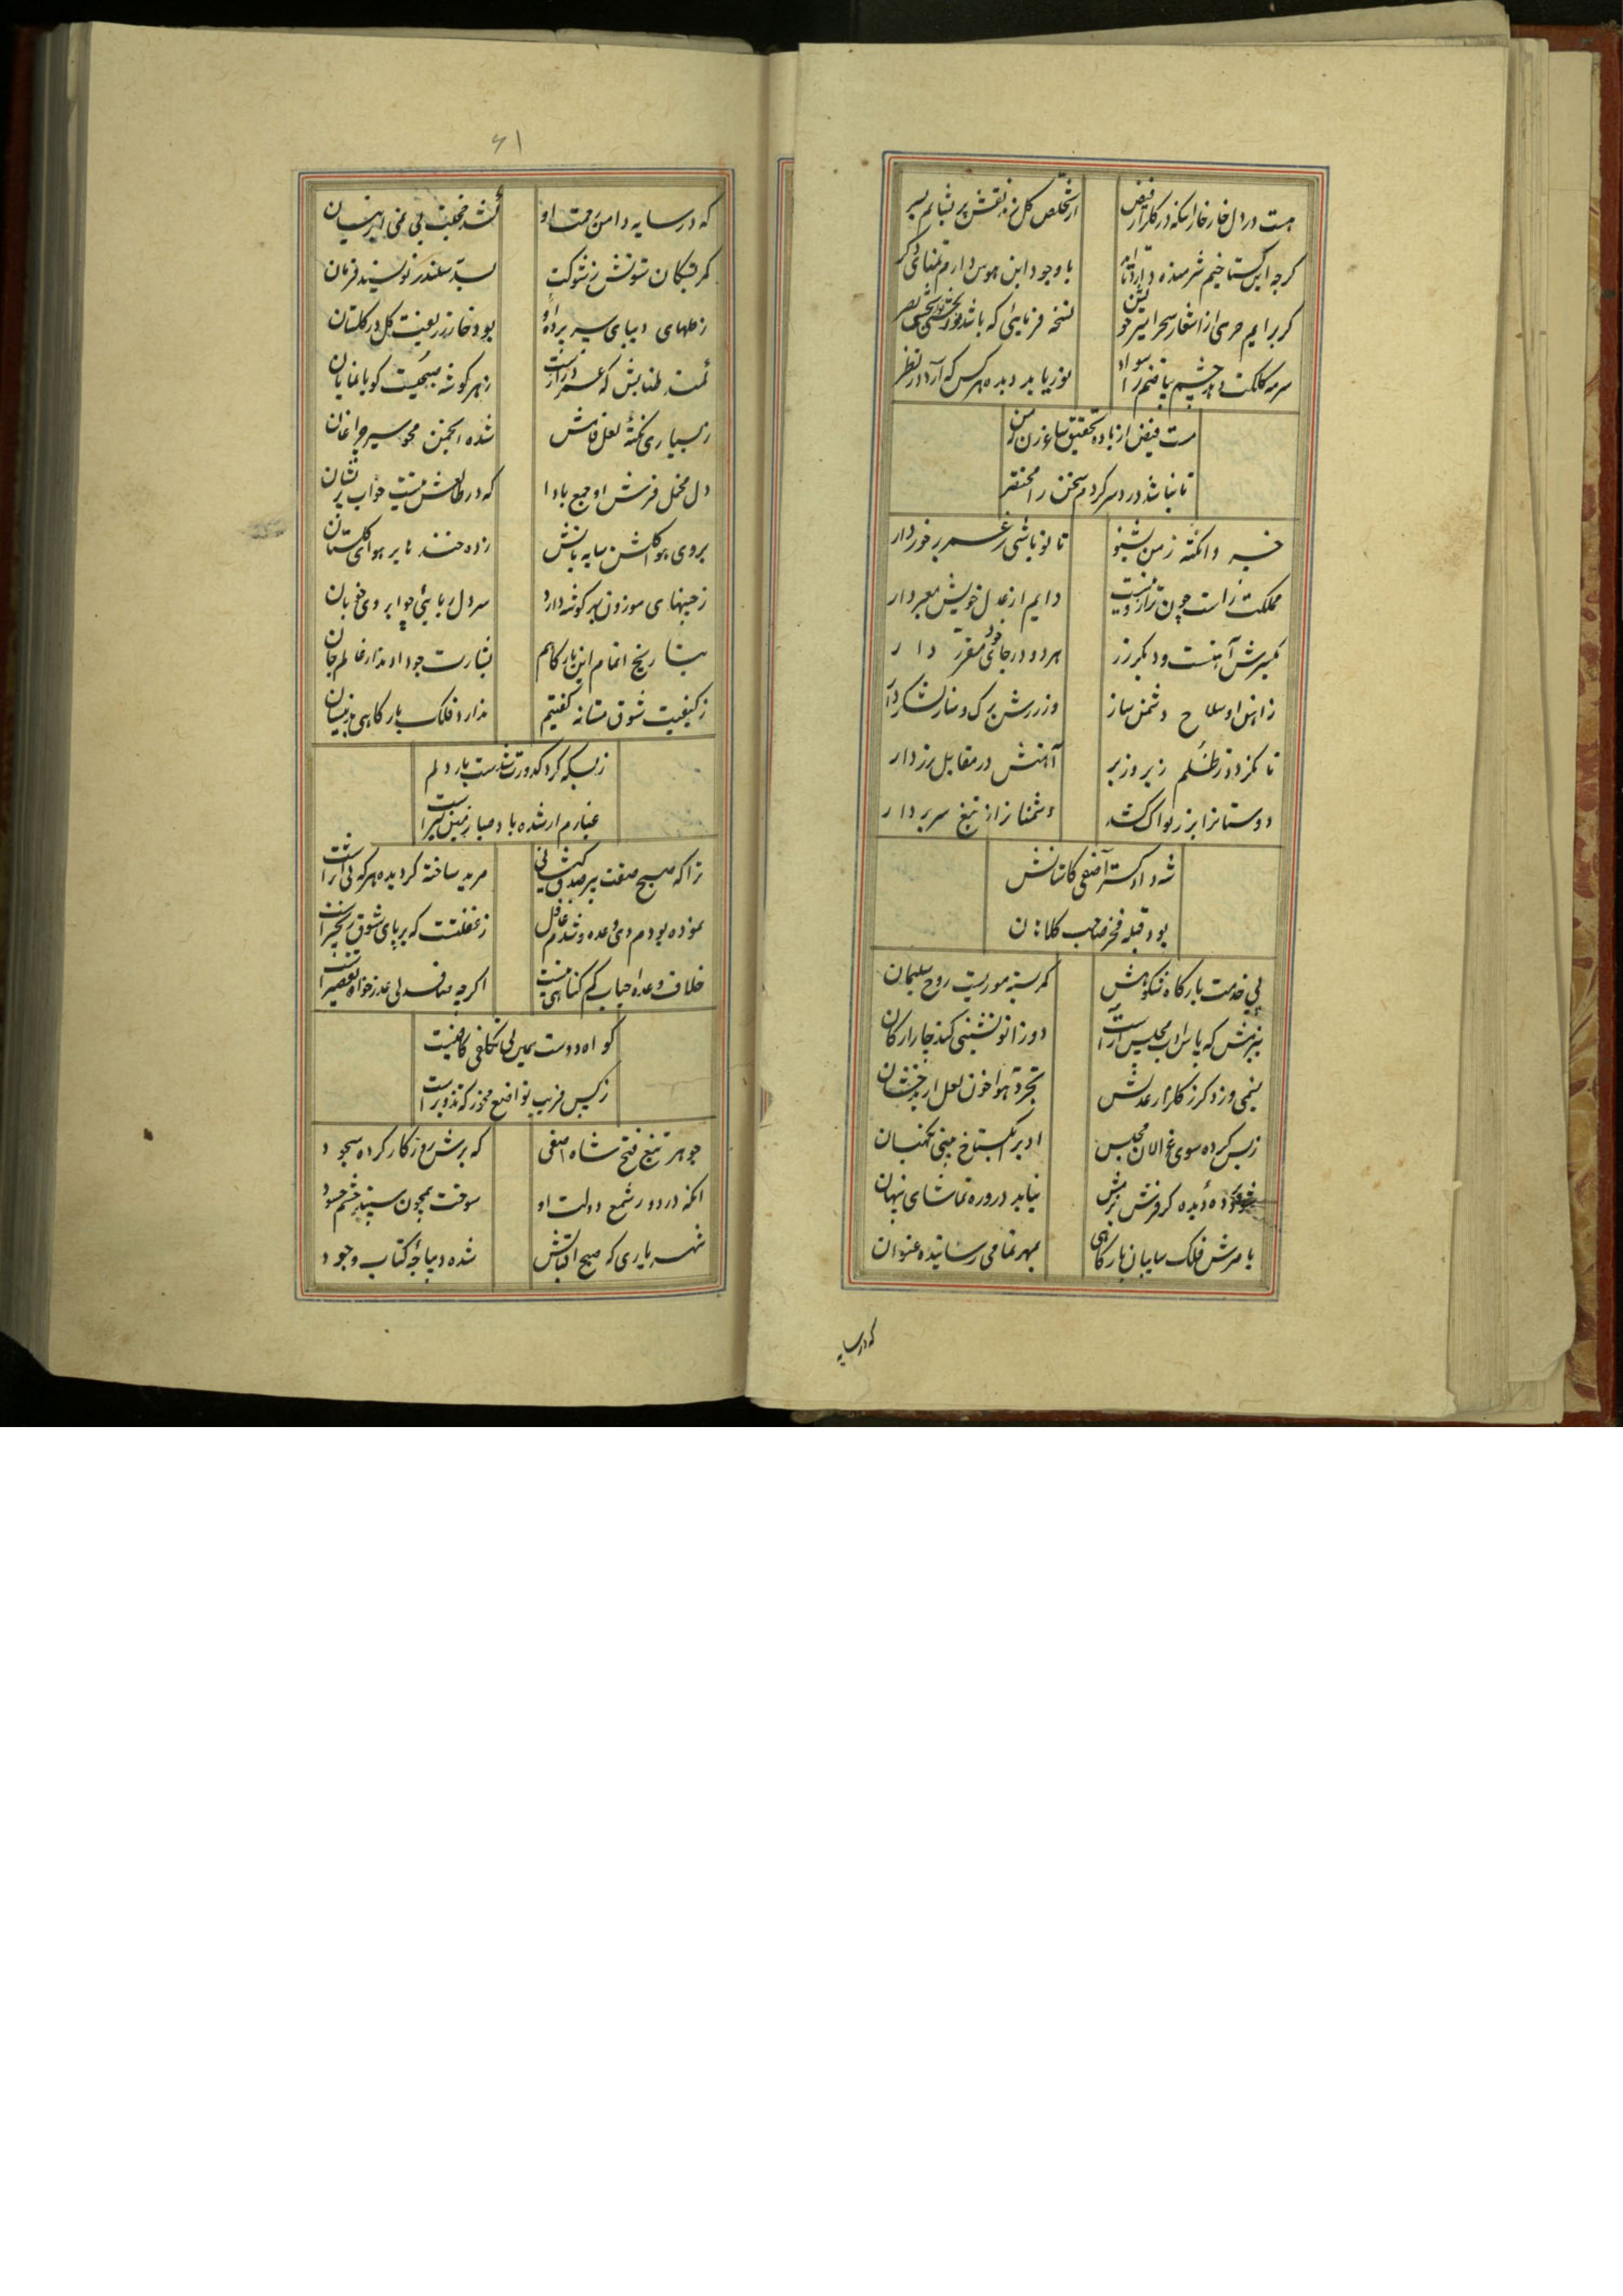 هست در دل خار خار اینکه در گلزار فیض
از تخلص گل زند نقش پریشانم بسر
کرچه این کستاخیم شرمنده دارد
با وجود این هوس دارم تمنای دکر
کر برایم حرمی از اشعار سحر
نسخه فرمایی که باشد
سرمه کلکت دهد چشم بیاضم را سواد
نور یابد دیده هر کس که آرد در نظر
مست فیض از باده تحقیق ساغر زن
تا نباشد درد سر کردم سخن را مختصر
خسروا نکته زمن بشنو
تا تو باشی ز عمر برخوردار
مملکت راست چون ترازوییست
دایم از عدل خویش معیر دار
یکسرش آهنست و دیکر زر
هر دو در جای خود مقرر دار
ز اهن او سلاح دشمن ساز
وز زرش برک و ساز لشکر دار
تا نکردد ز ظلم زیر و زبر
آهنش در مقابل زر دار
دوستانرا بزر نوا کشد
دشمنانرا ز تیغ سر بردار
شه دادکستر آصفی کاستانش
بود قبله فخر صاحب کلاهان
پی خدمت بارکاه شکوهش
کمر بسته موریست روح سلیمان
ببزمش که پاس ادب مجلس آراست
دو زانو نشینی کند چار ارکان
نسیمی وزد کر ز کلزار عدلش
بکرد هوا خون لعل از بدخشان
ز بس کرده سوی غزالان مجلس
ادب را بکستاخ بینی نکهبان
دیده کر فرش بزمش
نیاید درو ره تماشای پنهان
بامرش فلک سایبان بارکاهی
بمهر تمامی رسانیده عنوان
که در سایه
۶۱
که در سایه دامن همت او
نشد خجلت بی نمی ابر نیسان
کمر بستکان ستونش ز شوکت
بسد سکندر نویسند فرمان
ز کلهای دیبای سر پرده او
بود خار زربفت کل در کلستان
طنابش که عمر درازست
ز هر کوشه صبحیست کویا نمایان
ز بسیاری تکمه لعل فامش
شده انجمن محو سیر چراغان
دل مخمل فرش او جمع بادا
که در طالعش نیست خواب پریشان
بروی هوا کلشن سایه بانش
زده خنده‌ها بر هوای کلستان
ز چینهای موزون بهر کوشه دارد
سر دلربایی چو ابروی خوبان
بتاریخ اتمام این بارکاهم
بشارت چو داد مدار عالم جان
ز کیفیت شوق مستانه کفتیم
مدارد فلک بارکاهی بدینسان
ز بسکه کرد کدورت شدست بار دلم
غبارم ار شده باد صبا زمین کیر است
ترا که صبح صفت پیر صدق کیش نی
مرید ساخته کردیده هر که بی را است
نموده بودم دی وعده و شدم غافل
ز غفلتست که بر پای شوق زنجیر است
خلاف وعده احباب کم کناهی نیست
اکرچه صاف دلی عذر خواه تقصیر است
کواه دوست همین بی تکلفی کافیست
ز کس فریب تواضع مخور که تزویر است
جوهر تیغ فتح شاه صفی
که برش روزکار کرده سجود
انکه در دور شمع دولت او
سوخت همچون سپند چشم حسود
شهریاری که صبح اقبالش
شده دیباچه کتاب وجود